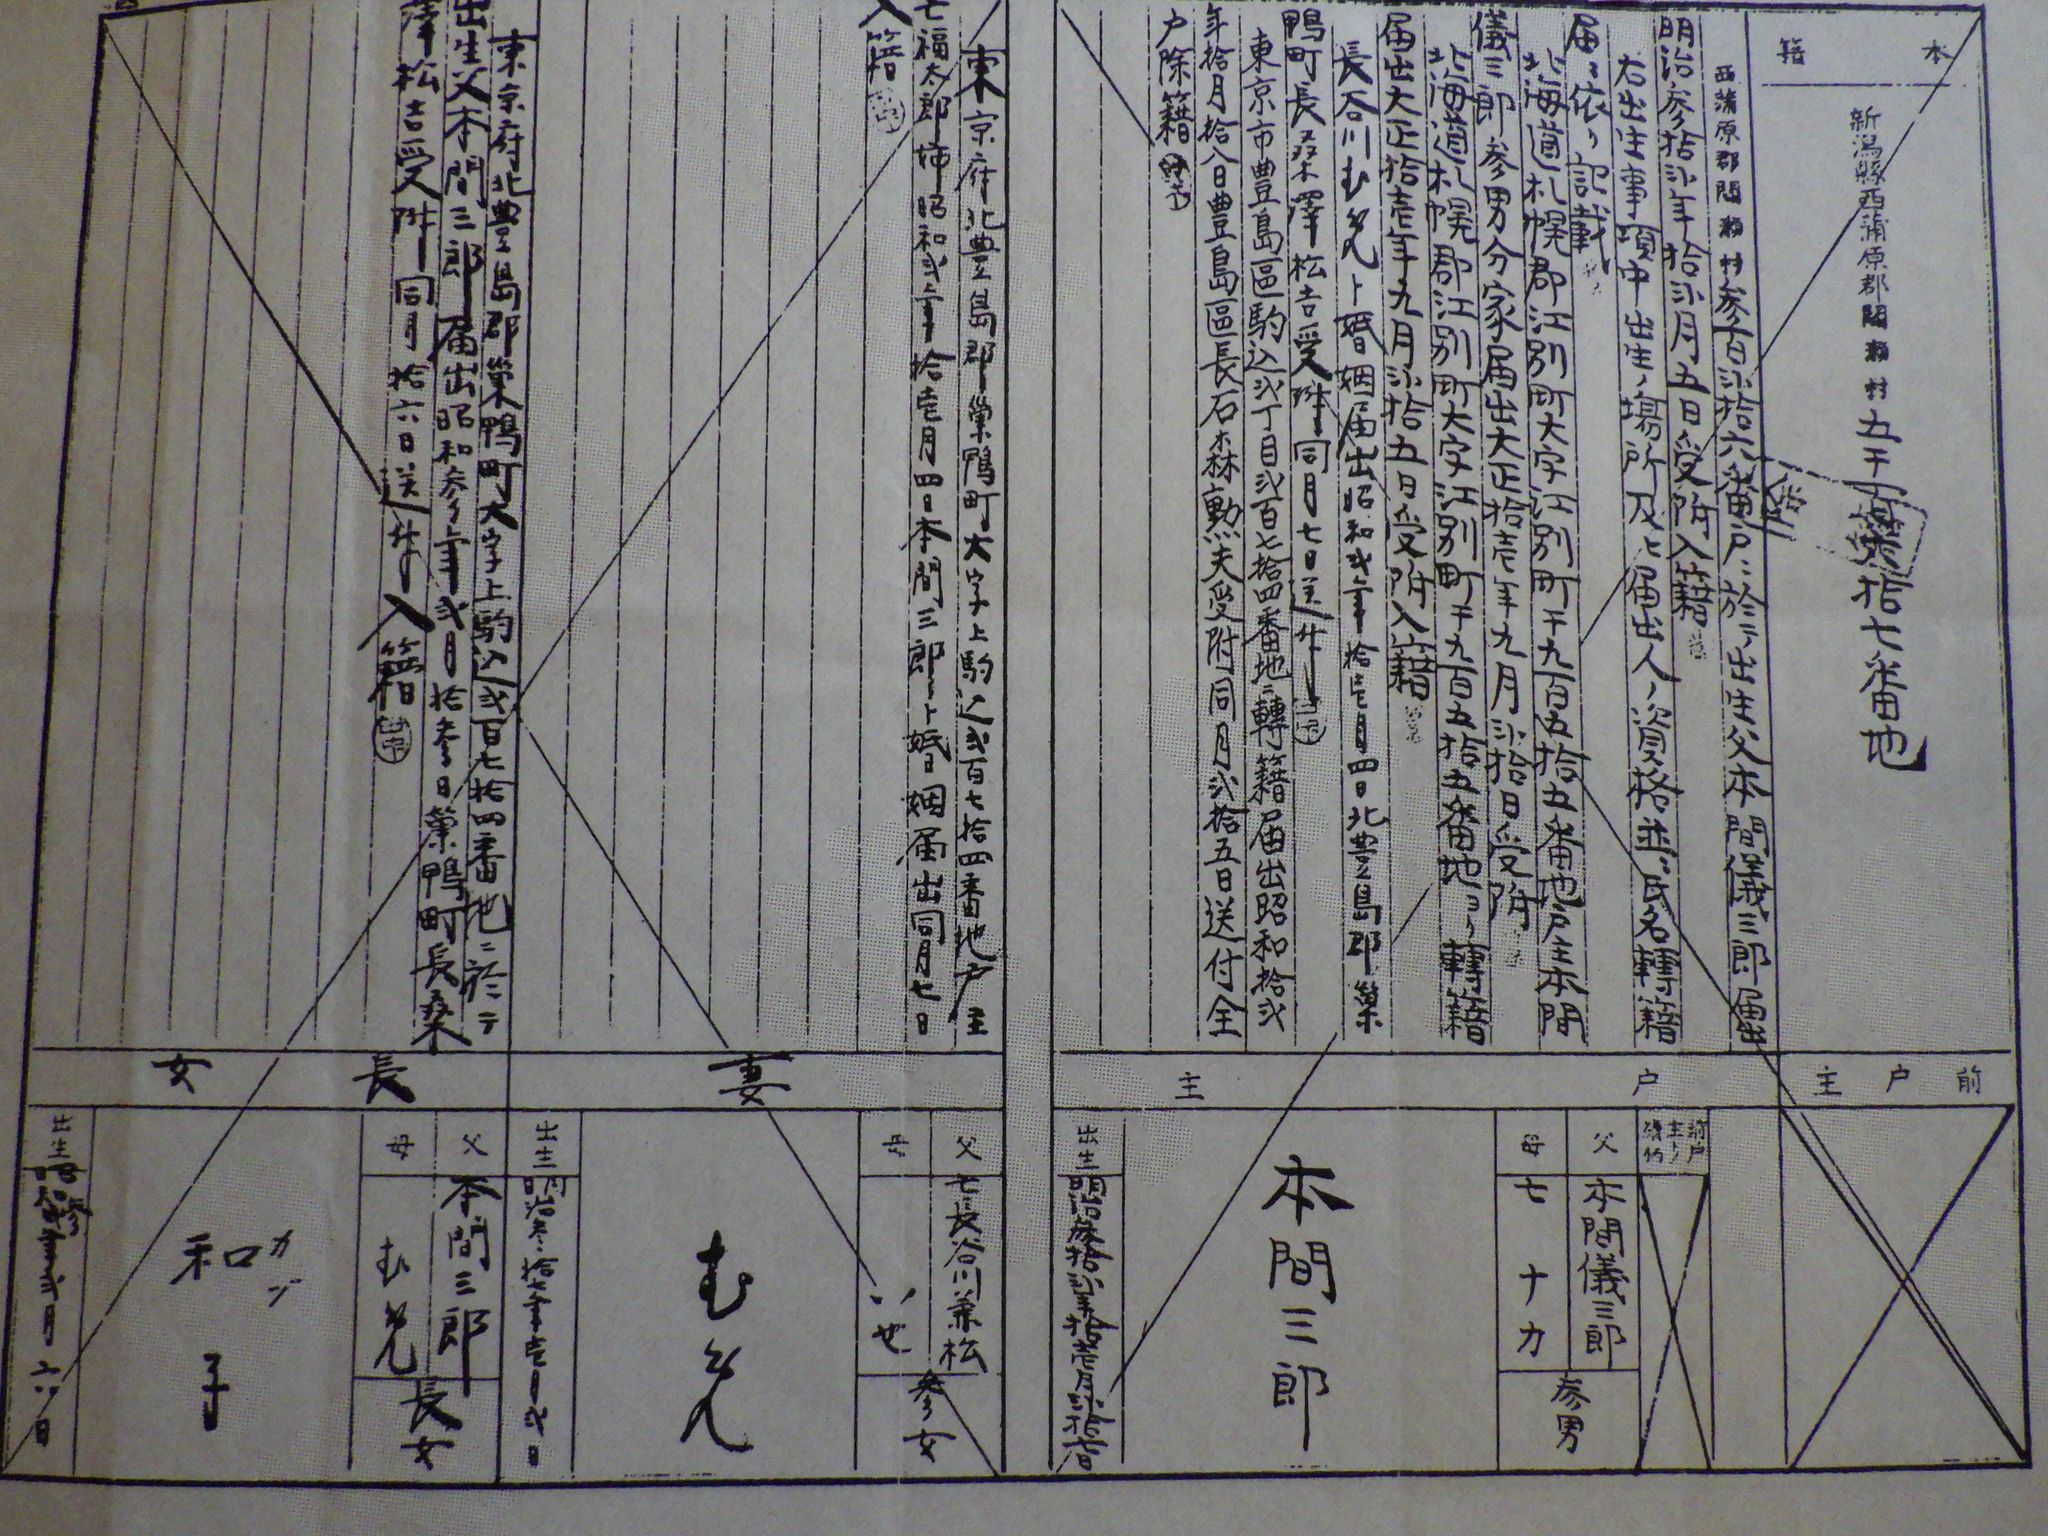 本籍
新潟縣西蒲原郡間瀬村五千
拾七番地
前戸主
西蒲原郡間瀬村参百弐拾六番戸ニ於テ出生父本間儀三郎届出
明治参拾弐年拾弐月五日受附入籍
右出生事項中出生ノ場所及ヒ届出人ノ資格並ニ氏名轉籍
届ニ依リ記載
北海道札幌郡江別町大字江別町千九百五拾五番地戸主本間
儀三郎参男分家届出大正拾壱年九月弐拾日受附
北海道札幌郡江別町大字江別町千九百五拾五番地ヨリ轉籍
届出大正拾壱年九月弐拾五日受附入籍
長谷川む免ト婚姻届出昭和弐年拾壱月四日北豊島郡巣
鴨町長桑澤松吉受附同月七日送付
東京市豊島區駒込弐丁目弐百七拾四番地ニ轉籍届出昭和拾弐
年拾月拾八日豊島區長石森勲夫受附同月弐拾五日送付全
戸除籍
戸主
前戸主トノ續柄
父 本間儀三郎
母 七ナカ
参男
本間三郎
出生
東京府北豊島郡巣鴨町大字上駒込弐百七拾四番地戸主
七福太郎姉昭和弐年拾壱月四日本間三郎ト婚姻届出同月七日
入籍
妻
父 七長谷川兼松
母 いせ
参女
む免
出生 明治参拾七年壱月弐日
東京府北豊島郡巣鴨町大字上駒込弐百七拾四番地ニ於テ
出生父本間三郎届出昭和参年弐月拾参日巣鴨町長桑
澤松吉受附同月拾六日送付入籍
長女
父 本間三郎
母 む免
長女
カヅ
和子
出生 昭和参年弐月六日